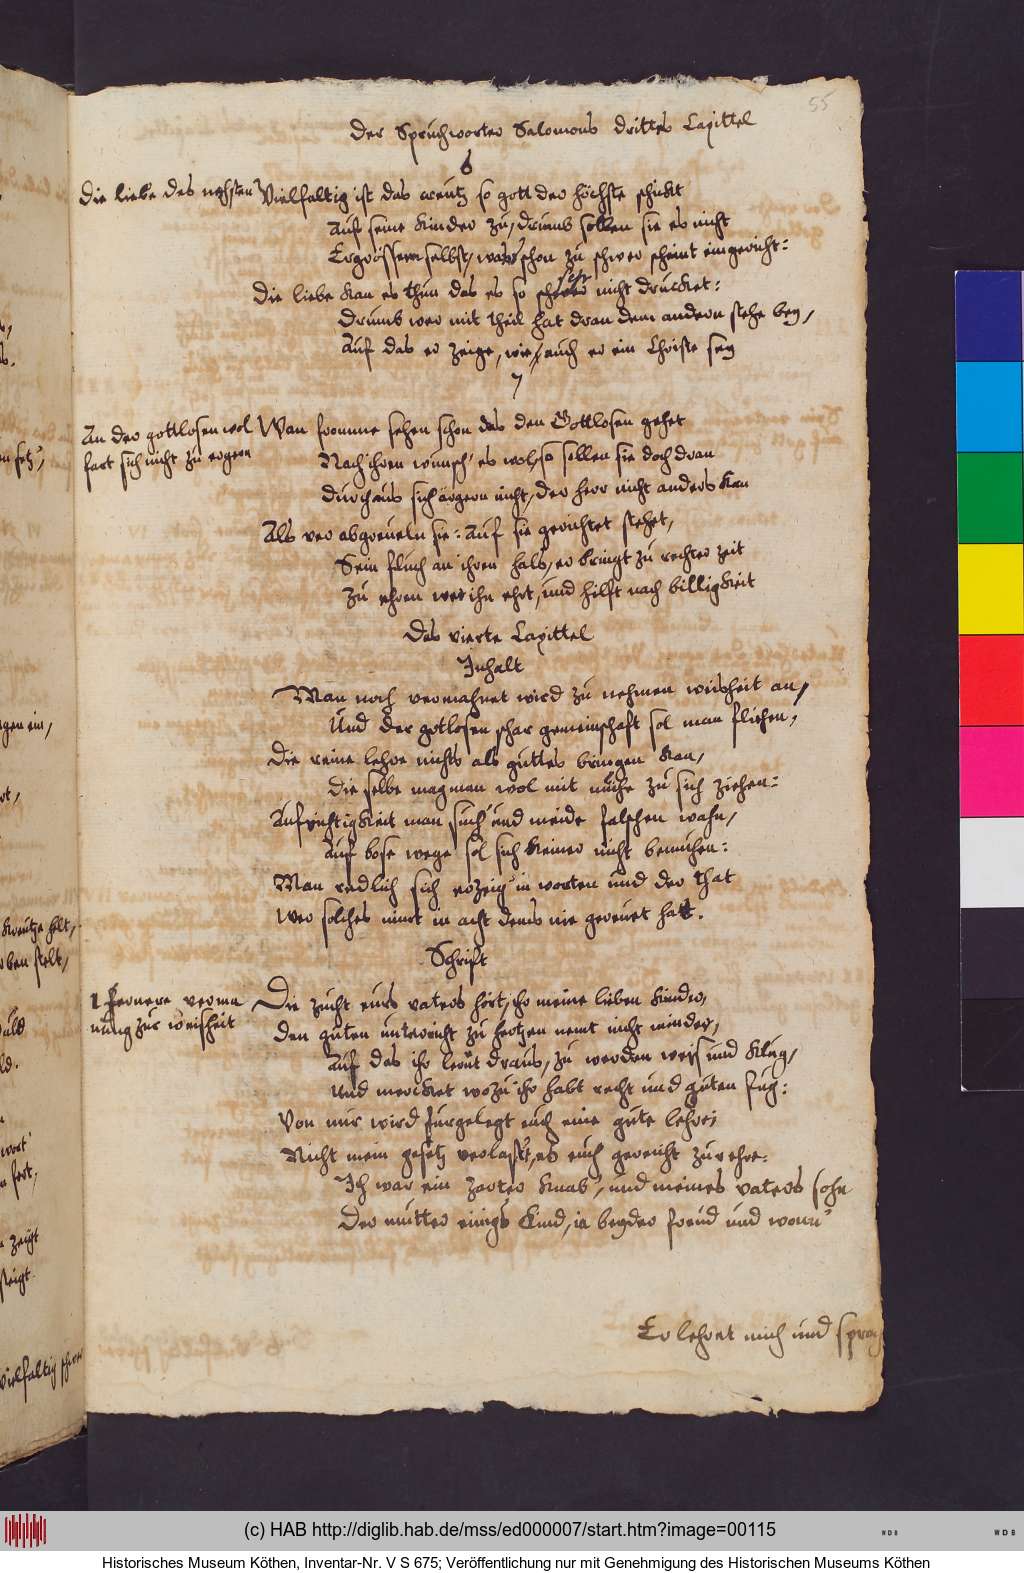 55
Der Spruchworter Salomons drittes Capittel
6
Die liebe des nechsten
Vielfaltig ist das creutz so gott der höchste schickt
Auf seine kinder zu, drumb sollen sie es nicht
Ergrössern selbst, was schon zu schwer scheint eingericht:
Die liebe kan es thun das es so sehr nicht drucket:
Drumb wer mit theil hat dran dem andern stehe bey,
Auf das er zeige, wie, auch er ein Christe sey
7
An der gottlosen wol
fart sich nicht zu ergern
Wan fromme sehen schon das den Gottlosen gehet
Nach ihren wunsch es wol, so sollen sie doch dran
durchaus sich ärgern nicht, der herr nicht anders kan
Als ver abgreueln sie: Auf sie gerichtet stehet,
Sein fluch an ihren hals, er bringt zu rechter zeit
Zu ehren wer ihn ehrt, und hilft nach billigkeit
Das vierte Capittel
Inhalt
Man noch vermahnet wird zu nehmen weisheit an,
Und der gotlosen schar gemeinschaft sol man fliehen,
Die reine lehre nichts als guttes bringen kan,
Die selbe mag man wol mit muhe zu sich ziehen:
Aufrichtigkeit man such und meide falschen wahn,
Auf bose wege sol sich keiner nicht bemuhen:
Man redlich sich erzeig in worten und der that
Wer solches nimt in acht dems nie gereuet hatt.
Schrift
1 Fernere verma
nung zur weisheit
Die zucht eurs vaters hört, ihr meine lieben kinder,
Den guten unterricht zu hertzen nemt nicht minder,
Auf das ihr lernt draus, zu werden weis und klug,
Und mercket wozu ihr habt recht und guten fug:
Von mir wird furgelegt euch eine gute lehre,
Nicht mein gesetz verlast, es euch gereicht zur ehre:
Ich war ein zarter knab, und meines vaters sohn
Der mutter einigs kind, ja beyder freud und wonn
Er lehret mich und sprach
vielfaltig
(c) HAB http://diglib.hab.de/mss/ed000007/start.htm?image=00115
Historisches Museum Köthen, Inventar-Nr. V S 675; Veröffentlichung nur mit Genehmigung des Historischen Museums Köthen